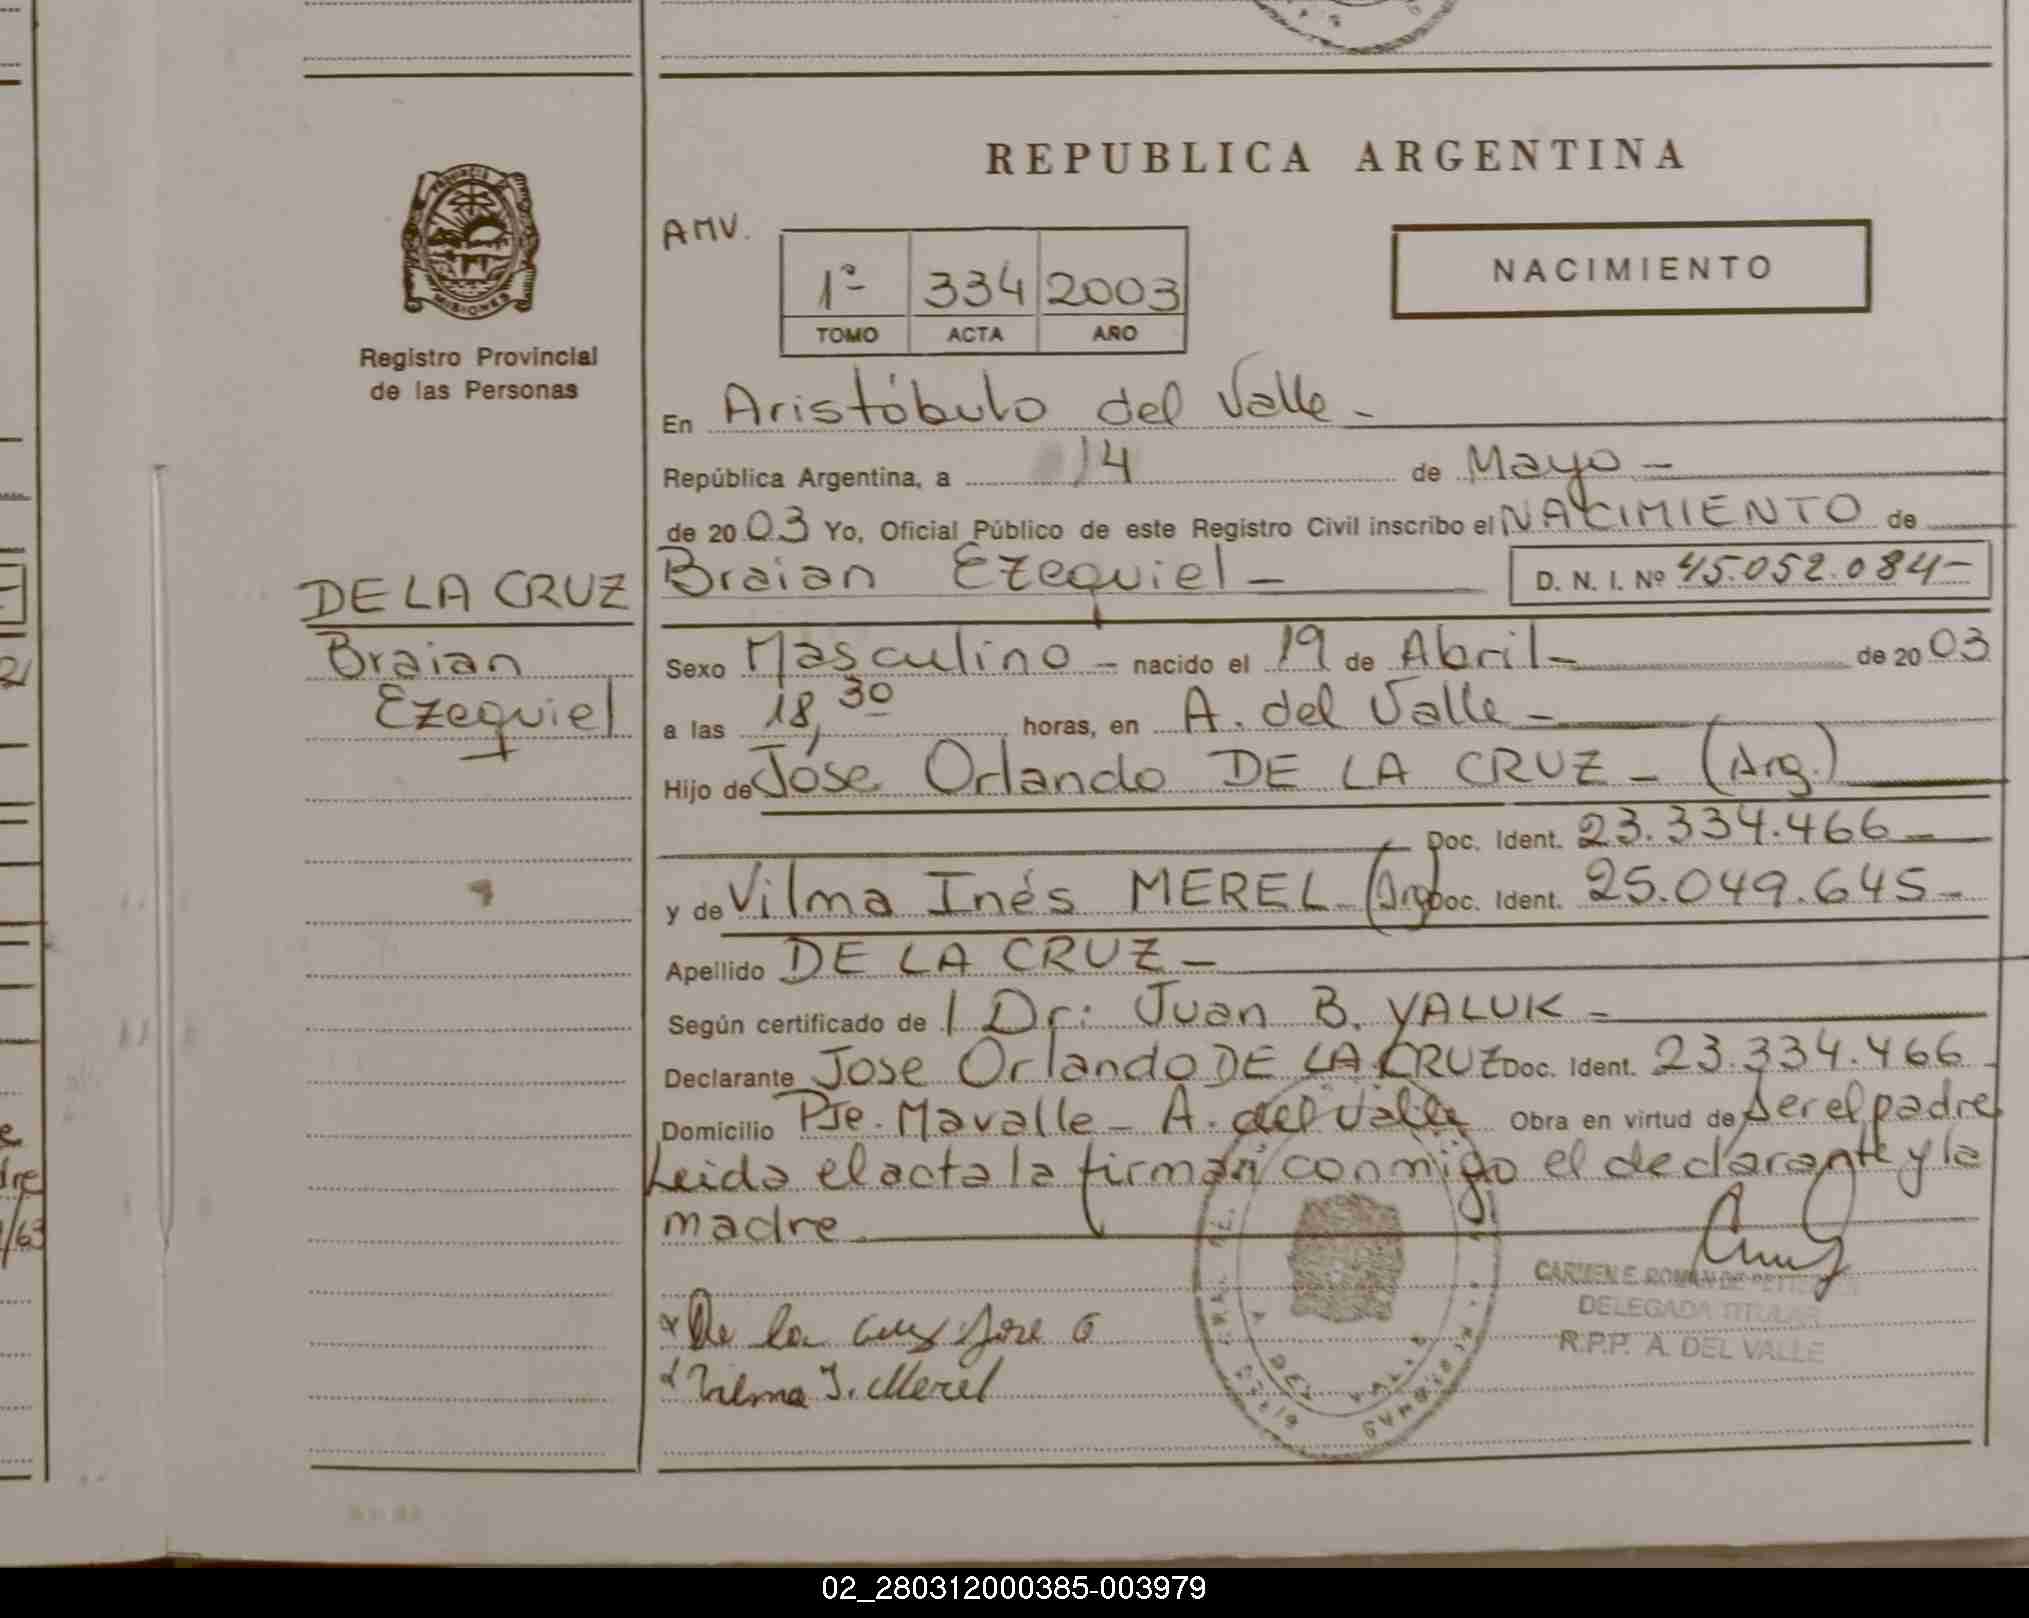 REPUBLICA ARGENTINA
PROVINCIA DE
MISIONES
Registro Provincial
de las Personas
AMV.
1º 334 2003
TOMO ACTA AÑO
NACIMIENTO
En Aristóbulo del Valle -
República Argentina, a 14 de Mayo -
de 2003 Yo, Oficial Público de este Registro Civil inscribo el NACIMIENTO de
DE LA CRUZ
Braian
Ezequiel
Braian Ezequiel - D. N. I. Nº 45.052.084-
Sexo Masculino - nacido el 19 de Abril - de 2003
a las 18,30 horas, en A. del Valle -
Hijo de José Orlando DE LA CRUZ - (Arg.)
Doc. Ident. 23.334.466 -
y de Vilma Inés MEREL (Arg) Doc. Ident. 25.049.645 -
Apellido DE LA CRUZ -
Según certificado de / Dr: Juan B. YALUK -
Declarante Jose Orlando DE LA CRUZ Doc. Ident. 23.334.466 -
Domicilio Pje. Mavalle - A. del Valle Obra en virtud de ser el padre
Leida el acta la firman conmigo el declarante y la
madre
De la Cruz Jose O
Vilma I. Merel
CARMEN E. ROMAN DE
DELEGADA TITULAR
R.P.P. A. DEL VALLE
A DEL VALLE
02_280312000385-003979